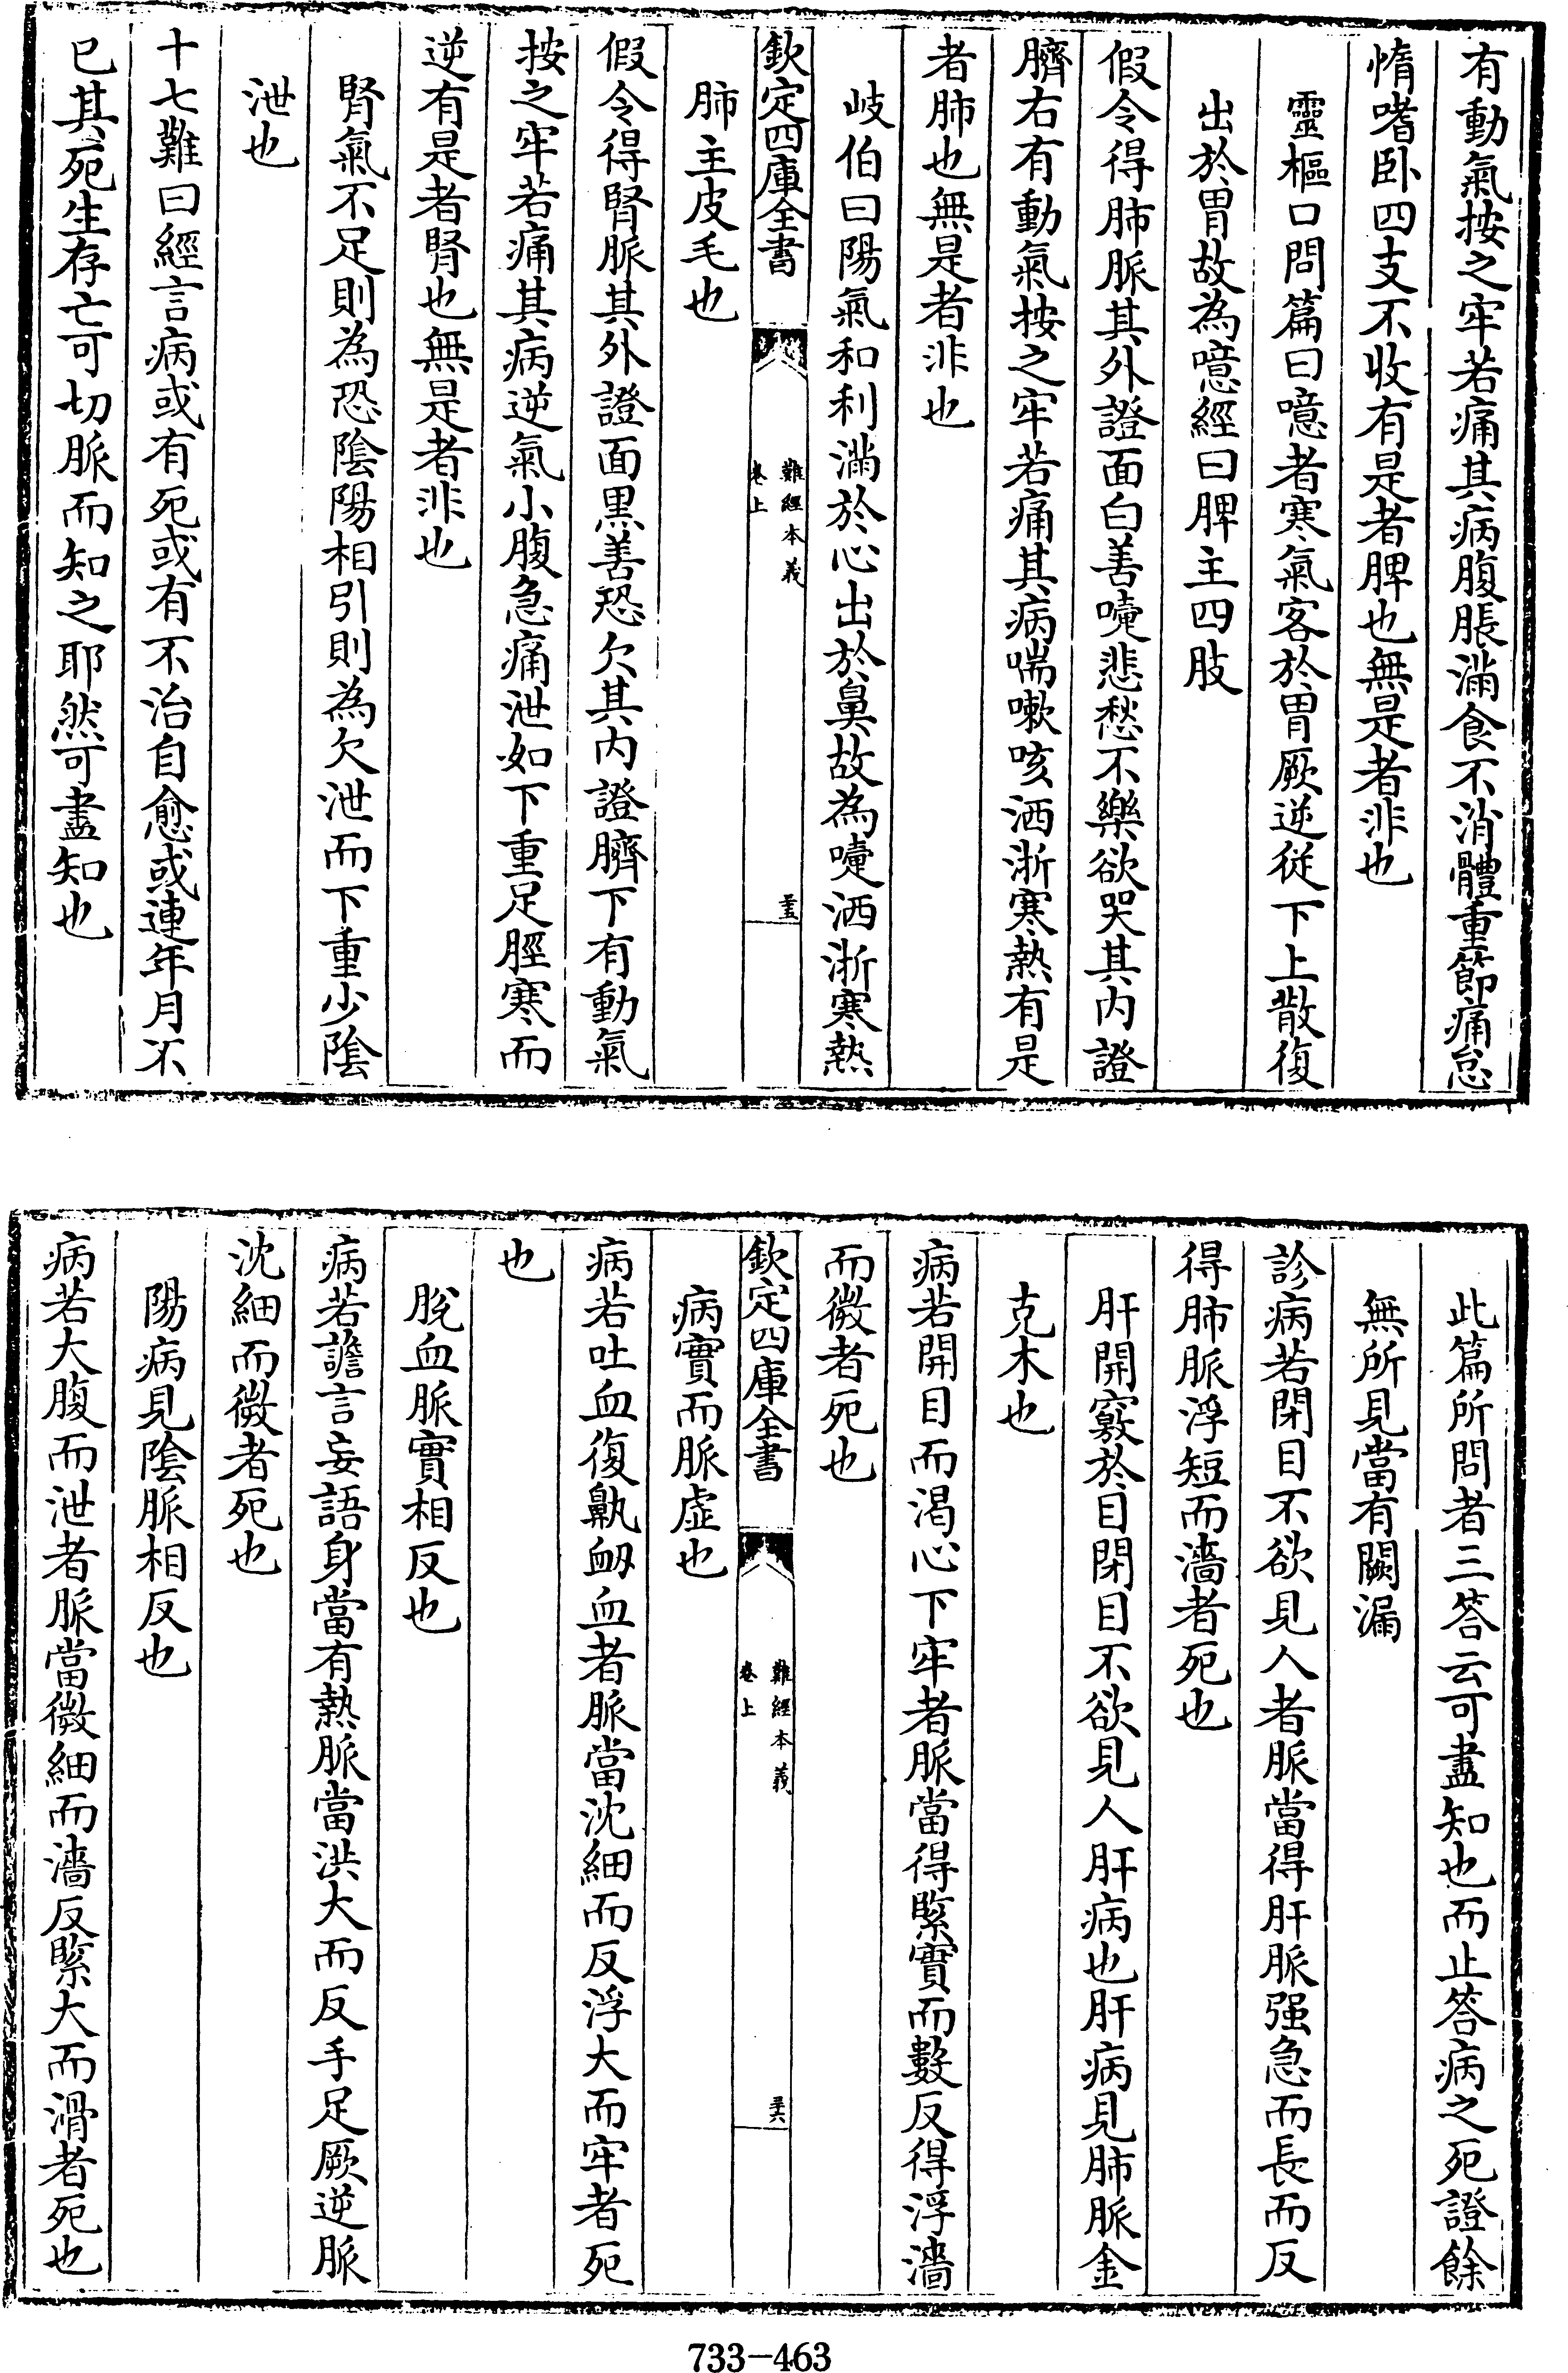 有動氣按之牢若痛其病腹脹滿食不消體重節痛怠
惰嗜卧四支不收有是者脾也無是者非也
靈樞口問篇曰噫者寒氣客於胃厥逆從下上散復
出於胃故為噫經曰脾主四肢
假令得肺脈其外證面白善嚏悲愁不樂欲哭其内證
臍右有動氣按之牢若痛其病喘嗽咳洒淅寒熱有是
者肺也無是者非也
岐伯曰陽氣和利滿於心出於鼻故為嚏洒淅寒熱
欽定四庫全書
難經本義
卷上
三十五
肺主皮毛也
假令得腎脈其外證面黒善恐欠其内證臍下有動氣
按之牢若痛其病逆氣小腹急痛泄如下重足脛寒而
逆有是者腎也無是者非也
腎氣不足則為恐陰陽相引則為欠泄而下重少陰
泄也
十七難曰經言病或有死或有不治自愈或連年月不
已其死生存亡可切脈而知之耶然可盡知也
此篇所問者三答云可盡知也而止答病之死證餘
無所見當有闕漏
診病若閉目不欲見人者脈當得肝脈强急而長而反
得肺脈浮短而濇者死也
肝開竅於目閉目不欲見人肝病也肝病見肺脈金
克木也
病若開目而渴心下牢者脈當得緊實而數反得浮濇
而微者死也
欽定四庫全書
難經本義
卷上
三十六
病實而脈虛也
病若吐血復鼽衄血者脈當沈細而反浮大而牢者死
也
脫血脈實相反也
病若譫言妄語身當有熱脈當洪大而反手足厥逆脈
沈細而微者死也
陽病見陰脈相反也
病若大腹而泄者脈當微細而濇反緊大而滑者死也
733-463